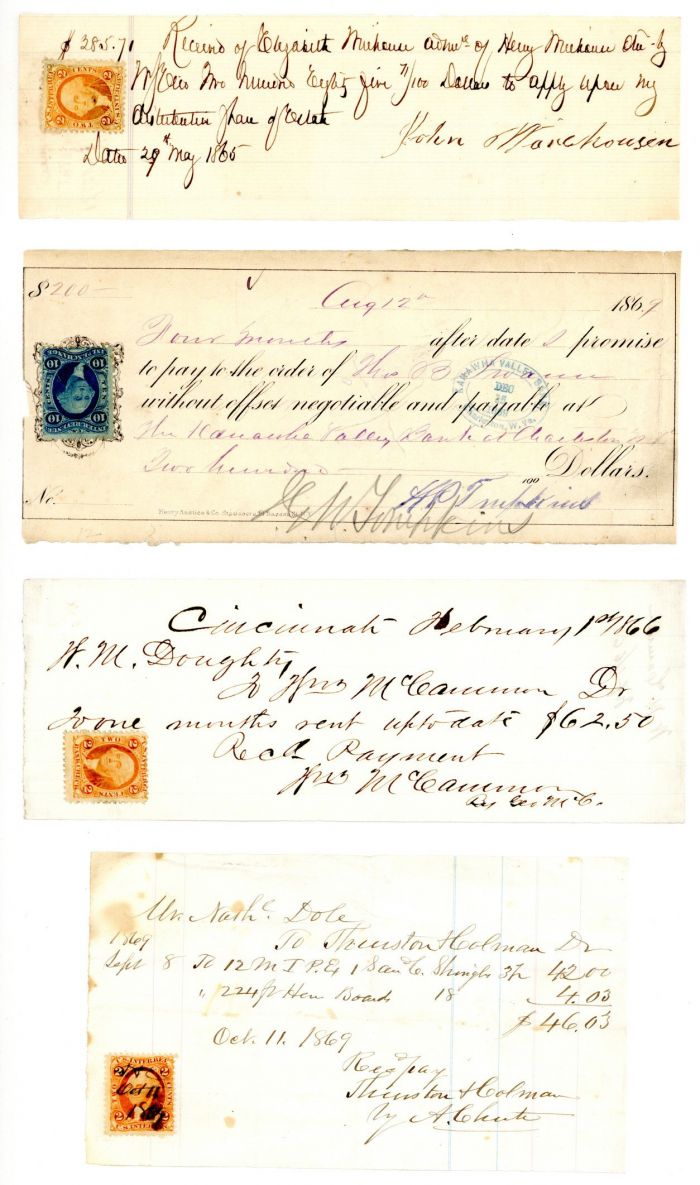 $ 285.71 Received of Elizabeth admx of Henry by
Two Hundred Eighty five 71/100 Dollars to apply upon my
distributive share of Estate
Dated 29th May 1865 John
U.S. INTER. REV.
TWO CENTS
2
$200
Aug 12th 1869
Four months after date I promise
to pay to the order of Thos B.
without offset negotiable and payable at
The Kanawha Valley Bank at Charleston
Two hundred 100 Dollars.
No.
KANAWHA VALLEY BANK
DEC
Charleston, W. Va.
10
Tompkins
H W Tompkins
Cincinnati February 1st 1866
W. M. Doughty
To Wm McCammon Dr
To one months rent up to date $62.50
Recd Payment
Wm McCammon
By Geo McC.
TWO CENTS
2
Mr. Nathl. Dole
1869 To Thurston & Colman Dr
Sept 8 To 12 M Shingls 3½ 42 00
" 224 ft Hem Boards 18 4.03
$ 46.03
Oct. 11. 1869
Recd pay
Thurston & Colman
by A. Chute
U.S. INTER. REV.
TWO CENTS
2
Oct 11
1869